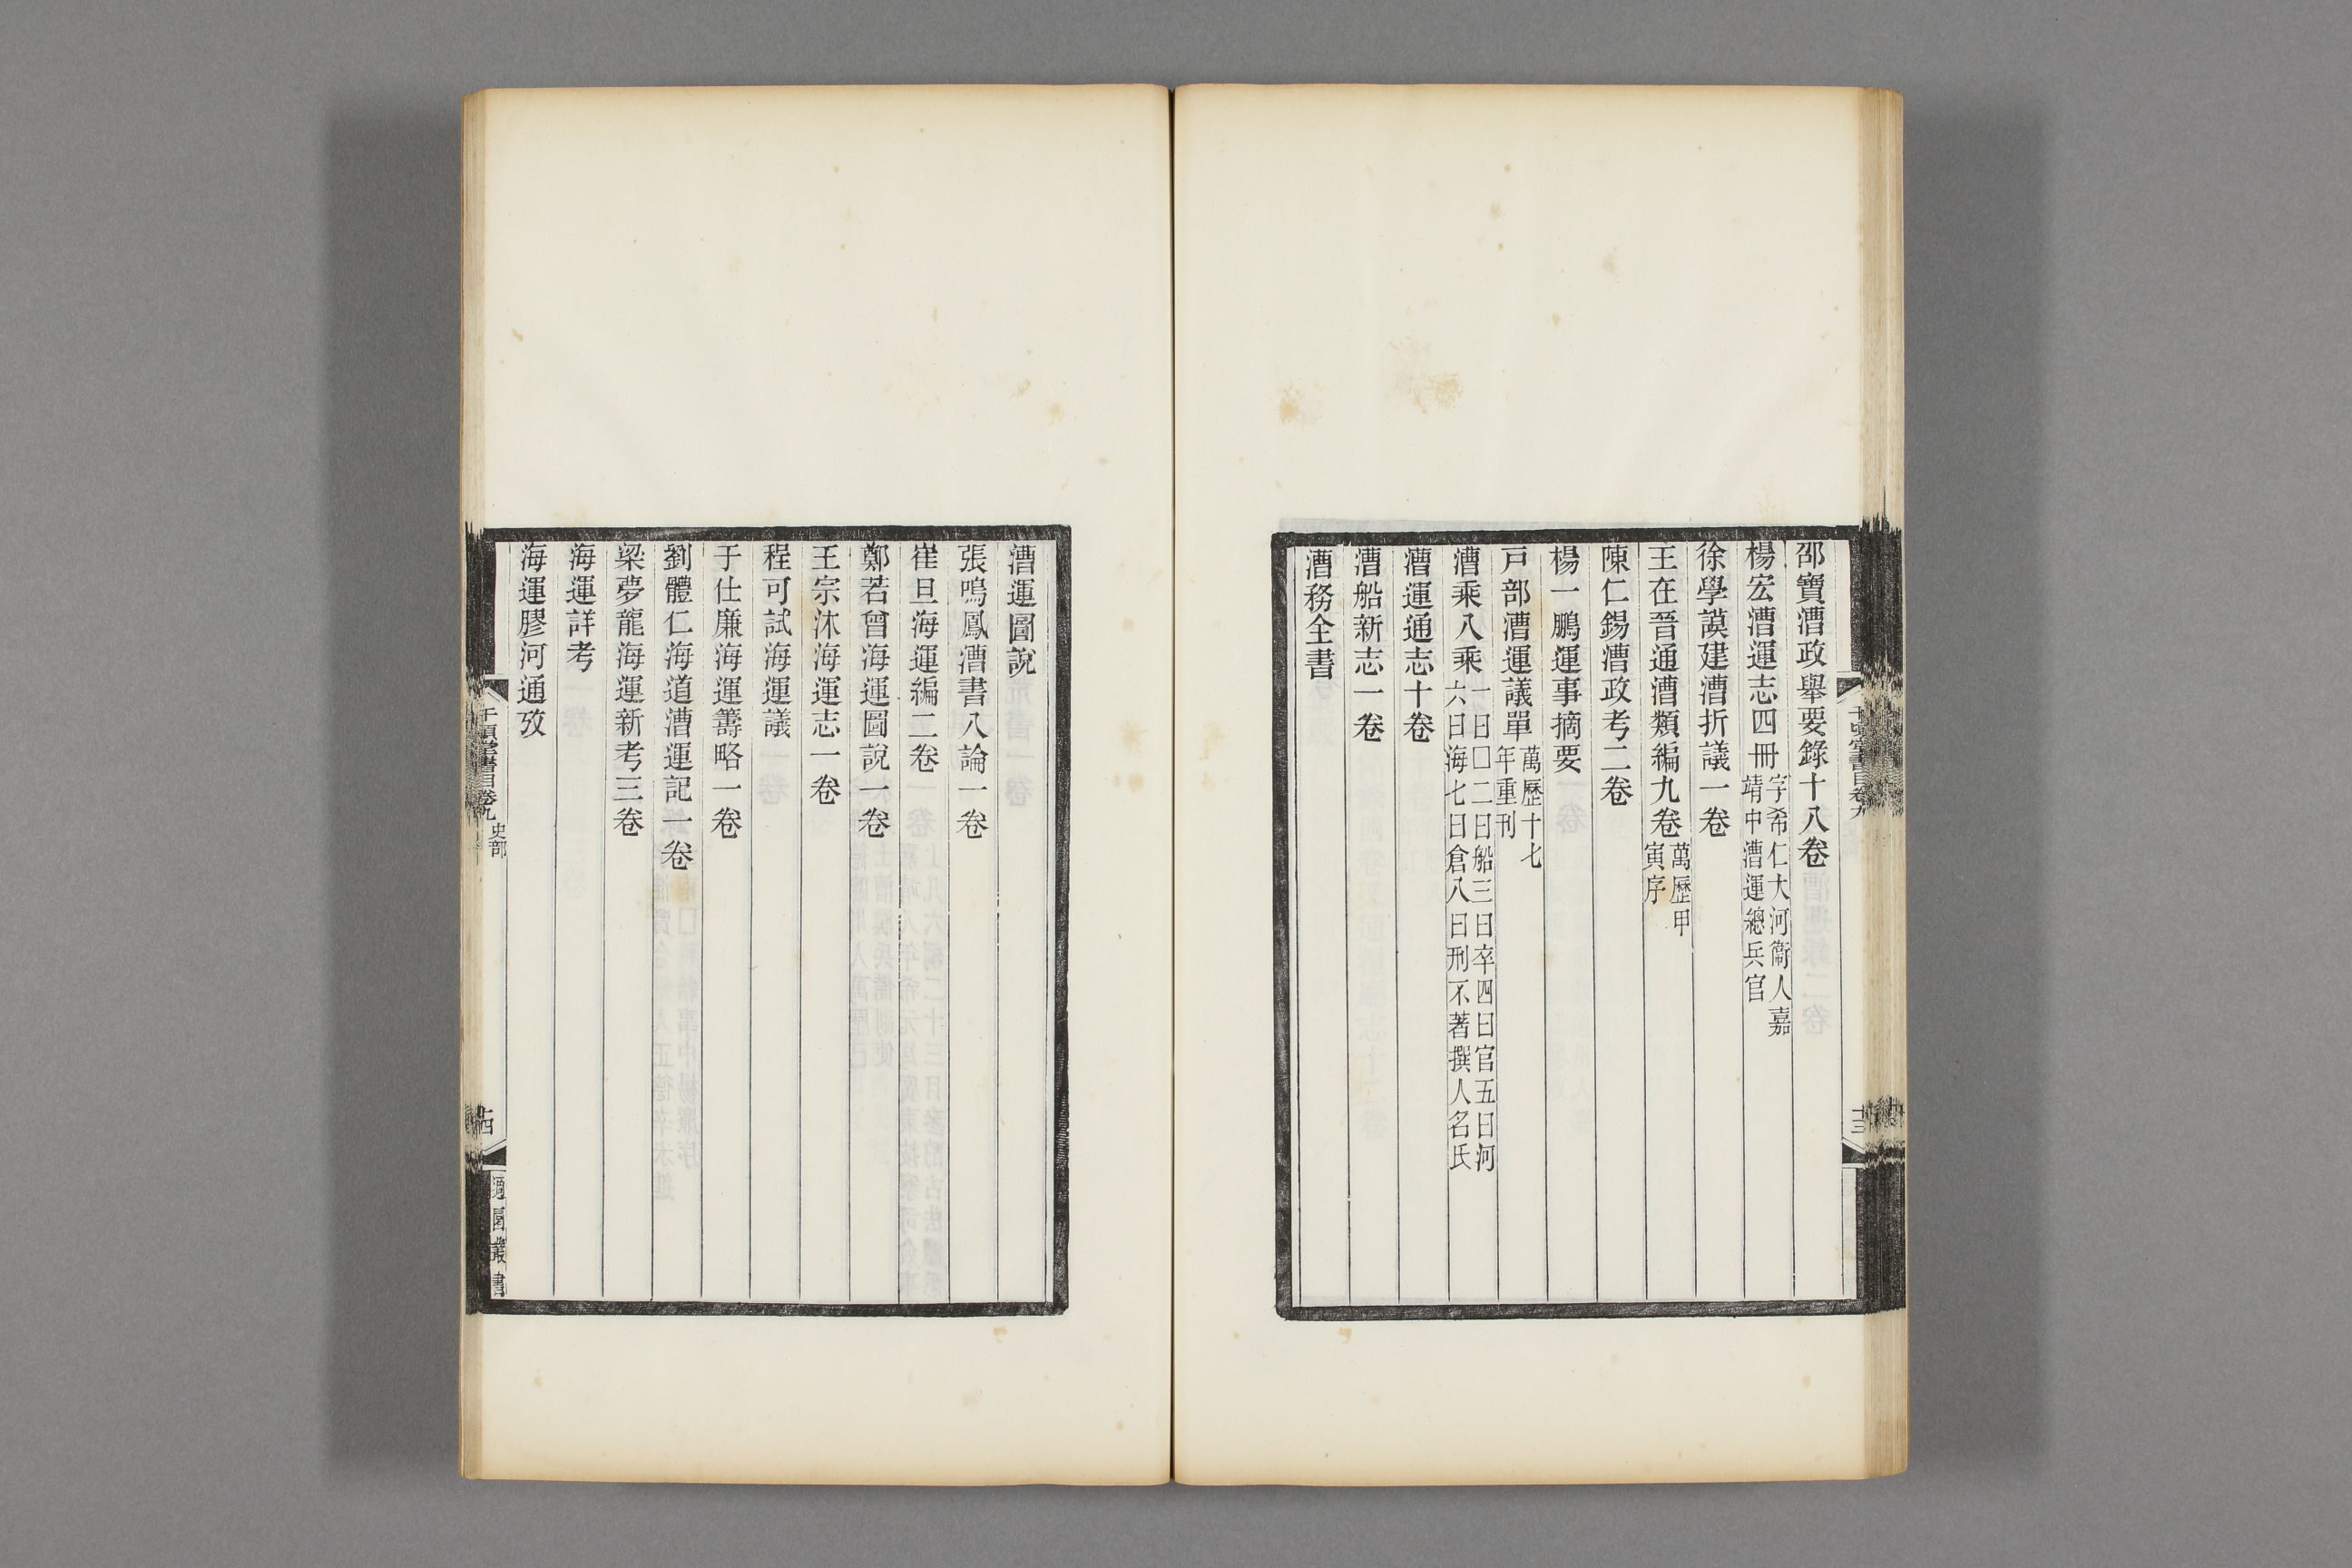 邵寶漕政舉要錄十八卷
楊宏漕運志四冊字希仁大河衞人嘉靖中漕運總兵官
徐學謨建漕折議一卷
王在晉通漕類編九卷萬歷甲寅序
陳仁錫漕政考二卷
楊一鵬運事摘要
戸部漕運議單萬歷十七年重刊
漕乘八乘一曰□二曰船三曰卒四曰官五曰河六曰海七曰倉八曰刑不著撰人名氏
漕運通志十卷
漕船新志一卷
漕務全書
千頃堂書目卷九
十三
漕運圖說
張鳴鳳漕書八論一卷
崔旦海運編二卷
鄭若曾海運圖說一卷
王宗沐海運志一卷
程可試海運議
于仕廉海運籌略一卷
劉體仁海道漕運記一卷
梁夢龍海運新考三卷
海運詳考
海運膠河通攷
千頃堂書目卷九 史部
十四
適園叢書